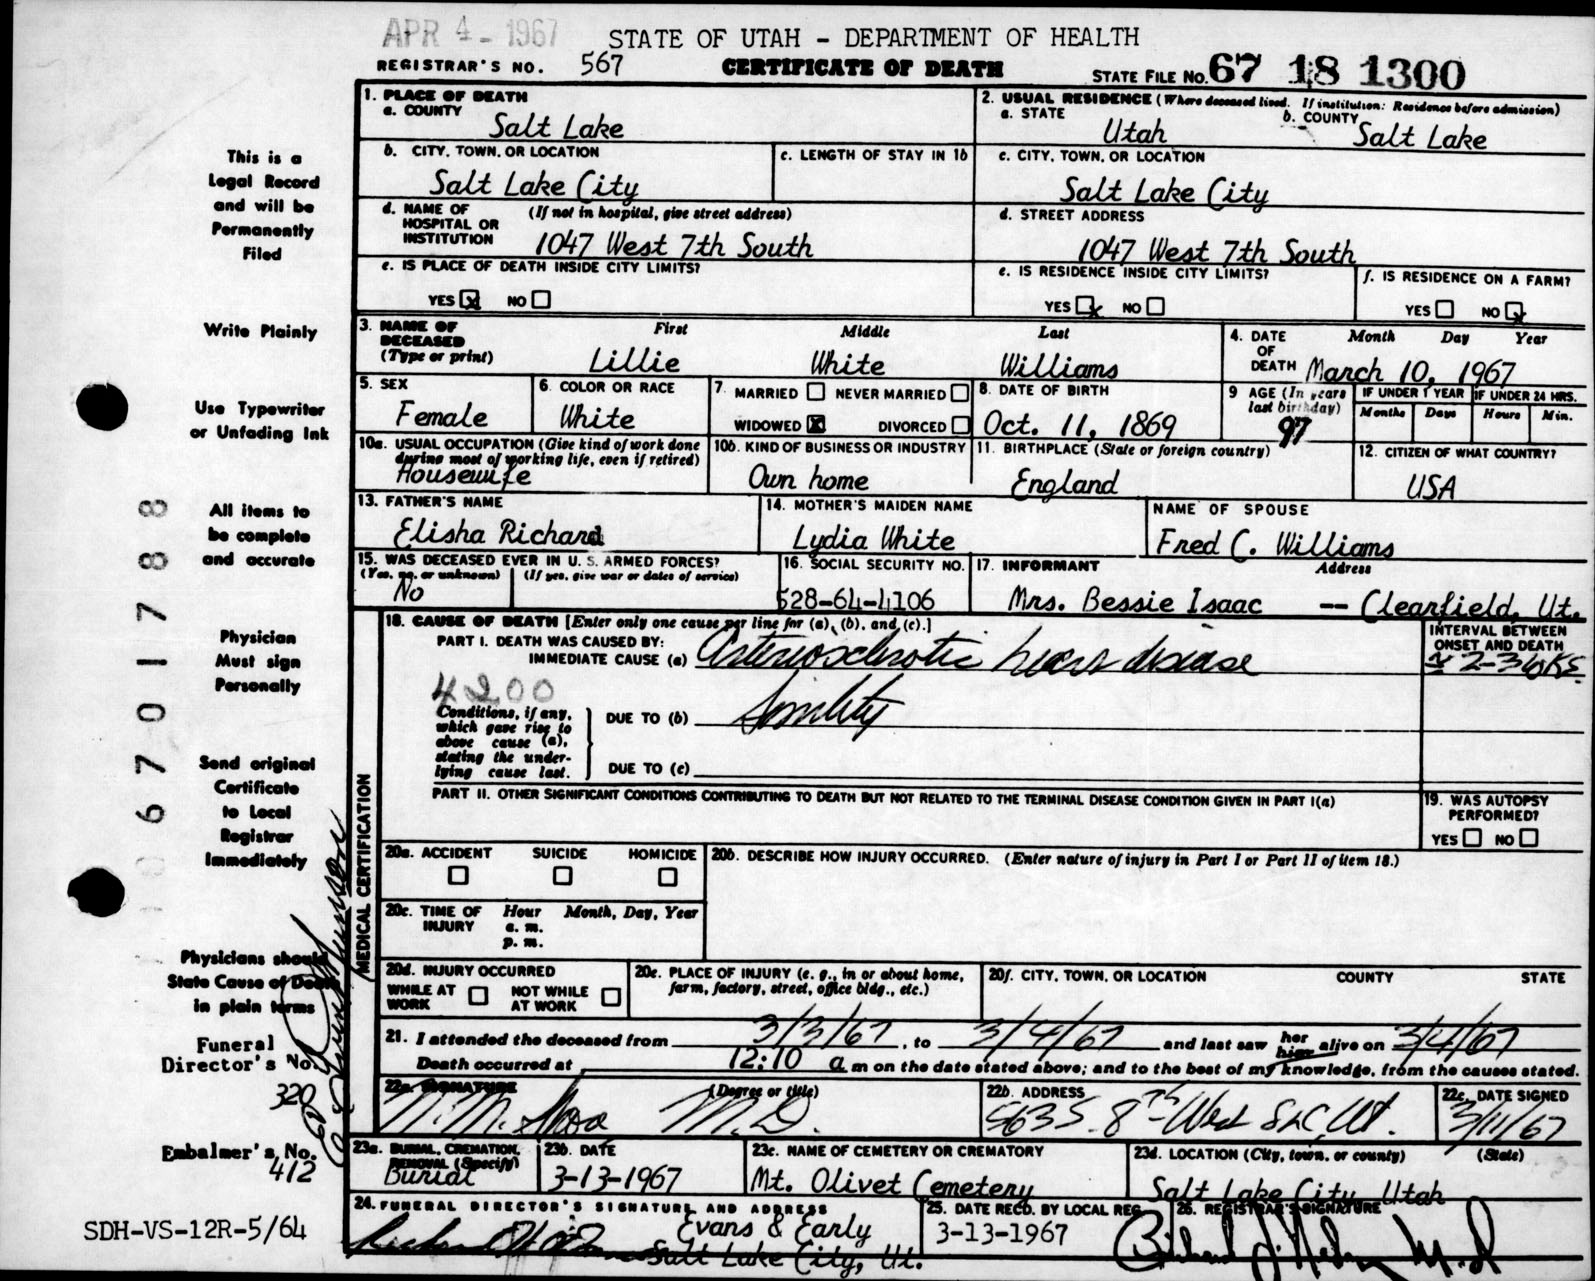 APR 4 - 1967
STATE OF UTAH - DEPARTMENT OF HEALTH
REGISTRAR'S NO. 567 CERTIFICATE OF DEATH STATE FILE NO. 67 18 1300
This is a
Legal Record
and will be
Permanently
Filed
Write Plainly
Use Typewriter
or Unfading Ink
All items to
be complete
and accurate
Physician
Must sign
Personally
Send original
Certificate
to Local
Registrar
Immediately
Physicians should
State Cause of Death
in plain terms
Funeral
Director's No.
320
Embalmer's No.
412
SDH-VS-12R-5/64
06701788
1. PLACE OF DEATH
a. COUNTY
Salt Lake
2. USUAL RESIDENCE (Where deceased lived. If institution: Residence before admission)
a. STATE b. COUNTY
Utah Salt Lake
b. CITY, TOWN, OR LOCATION c. LENGTH OF STAY IN 1b
Salt Lake City
c. CITY, TOWN, OR LOCATION
Salt Lake City
d. NAME OF HOSPITAL OR INSTITUTION (If not in hospital, give street address)
1047 West 7th South
d. STREET ADDRESS
1047 West 7th South
e. IS PLACE OF DEATH INSIDE CITY LIMITS?
YES X NO
e. IS RESIDENCE INSIDE CITY LIMITS?
YES X NO
f. IS RESIDENCE ON A FARM?
YES NO X
3. NAME OF DECEASED (Type or print) First Middle Last
Lillie White Williams
4. DATE OF DEATH Month Day Year
March 10, 1967
5. SEX
Female
6. COLOR OR RACE
White
7. MARRIED NEVER MARRIED
WIDOWED X DIVORCED
8. DATE OF BIRTH
Oct. 11, 1869
9 AGE (In years last birthday)
97
IF UNDER 1 YEAR IF UNDER 24 HRS.
Months Days Hours Min.
10a. USUAL OCCUPATION (Give kind of work done during most of working life, even if retired)
Housewife
10b. KIND OF BUSINESS OR INDUSTRY
Own home
11. BIRTHPLACE (State or foreign country)
England
12. CITIZEN OF WHAT COUNTRY?
USA
13. FATHER'S NAME
Elisha Richard
14. MOTHER'S MAIDEN NAME
Lydia White
NAME OF SPOUSE
Fred C. Williams
15. WAS DECEASED EVER IN U. S. ARMED FORCES?
(Yes, no, or unknown) (If yes, give war or dates of service)
No
16. SOCIAL SECURITY NO.
528-64-4106
17. INFORMANT Address
Mrs. Bessie Isaac -- Clearfield, Ut.
MEDICAL CERTIFICATION
18. CAUSE OF DEATH [Enter only one cause per line for (a), (b), and, (c).]
PART I. DEATH WAS CAUSED BY:
IMMEDIATE CAUSE (a) Arteriosclerotic heart disease
INTERVAL BETWEEN
ONSET AND DEATH
4200
Conditions, if any,
which gave rise to
above cause (a),
stating the under-
lying cause last.
DUE TO (b) Senility
DUE TO (c)
PART II. OTHER SIGNIFICANT CONDITIONS CONTRIBUTING TO DEATH BUT NOT RELATED TO THE TERMINAL DISEASE CONDITION GIVEN IN PART I(a)
19. WAS AUTOPSY PERFORMED?
YES NO
20a. ACCIDENT SUICIDE HOMICIDE
20b. DESCRIBE HOW INJURY OCCURRED. (Enter nature of injury in Part I or Part II of item 18.)
20c. TIME OF INJURY Hour Month, Day, Year
a. m.
p. m.
20d. INJURY OCCURRED
WHILE AT WORK NOT WHILE AT WORK
20e. PLACE OF INJURY (e. g., in or about home, farm, factory, street, office bldg., etc.)
20f. CITY, TOWN, OR LOCATION COUNTY STATE
21. I attended the deceased from 3/3/67, to 3/4/67 and last saw her him alive on 3/4/67
Death occurred at 12:10 a m on the date stated above; and to the best of my knowledge, from the causes stated.
22a. SIGNATURE (Degree or title)
M.D.
22b. ADDRESS
8th West SLC, Ut.
22c. DATE SIGNED
3/11/67
23a. BURIAL, CREMATION, REMOVAL (Specify)
Burial
23b. DATE
3-13-1967
23c. NAME OF CEMETERY OR CREMATORY
Mt. Olivet Cemetery
23d. LOCATION (City, town, or county) (State)
Salt Lake City, Utah
24. FUNERAL DIRECTOR'S SIGNATURE AND ADDRESS
Evans & Early
Salt Lake City, Ut.
25. DATE RECD. BY LOCAL REG.
3-13-1967
26. REGISTRAR'S SIGNATURE